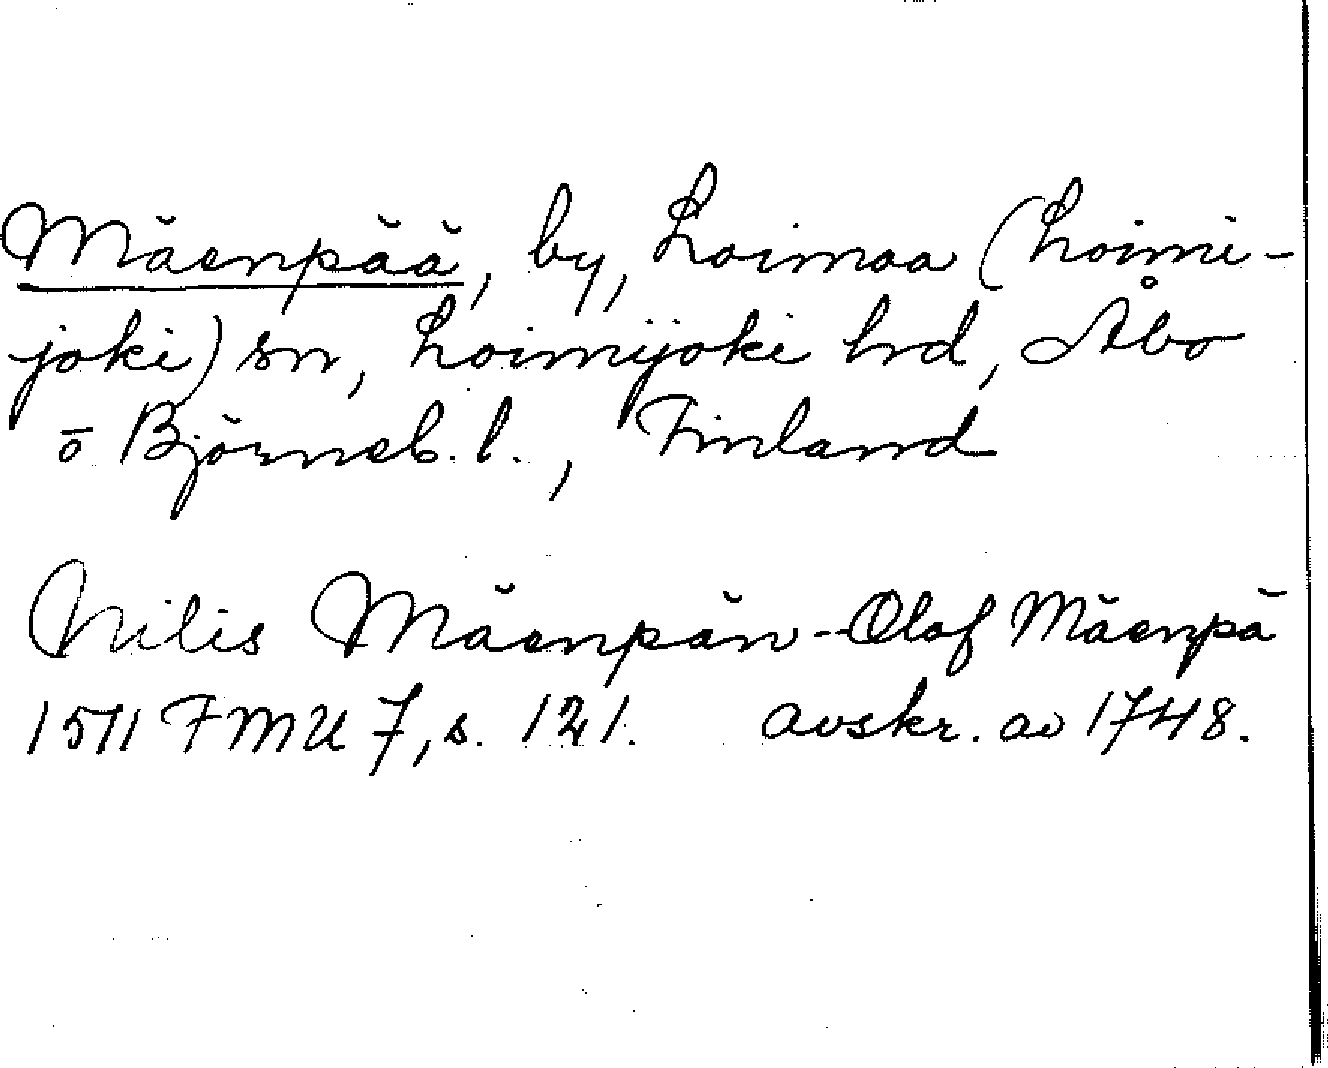 Mäenpää, by, Loimaa (Loimi-
joki) sn, Loimijoki hrd, Åbo
o Björneb. l., Finland
Nilis Mäenpän - Olof Mäenpä
1511 FMU 7, s. 121. avskr. av 1748.